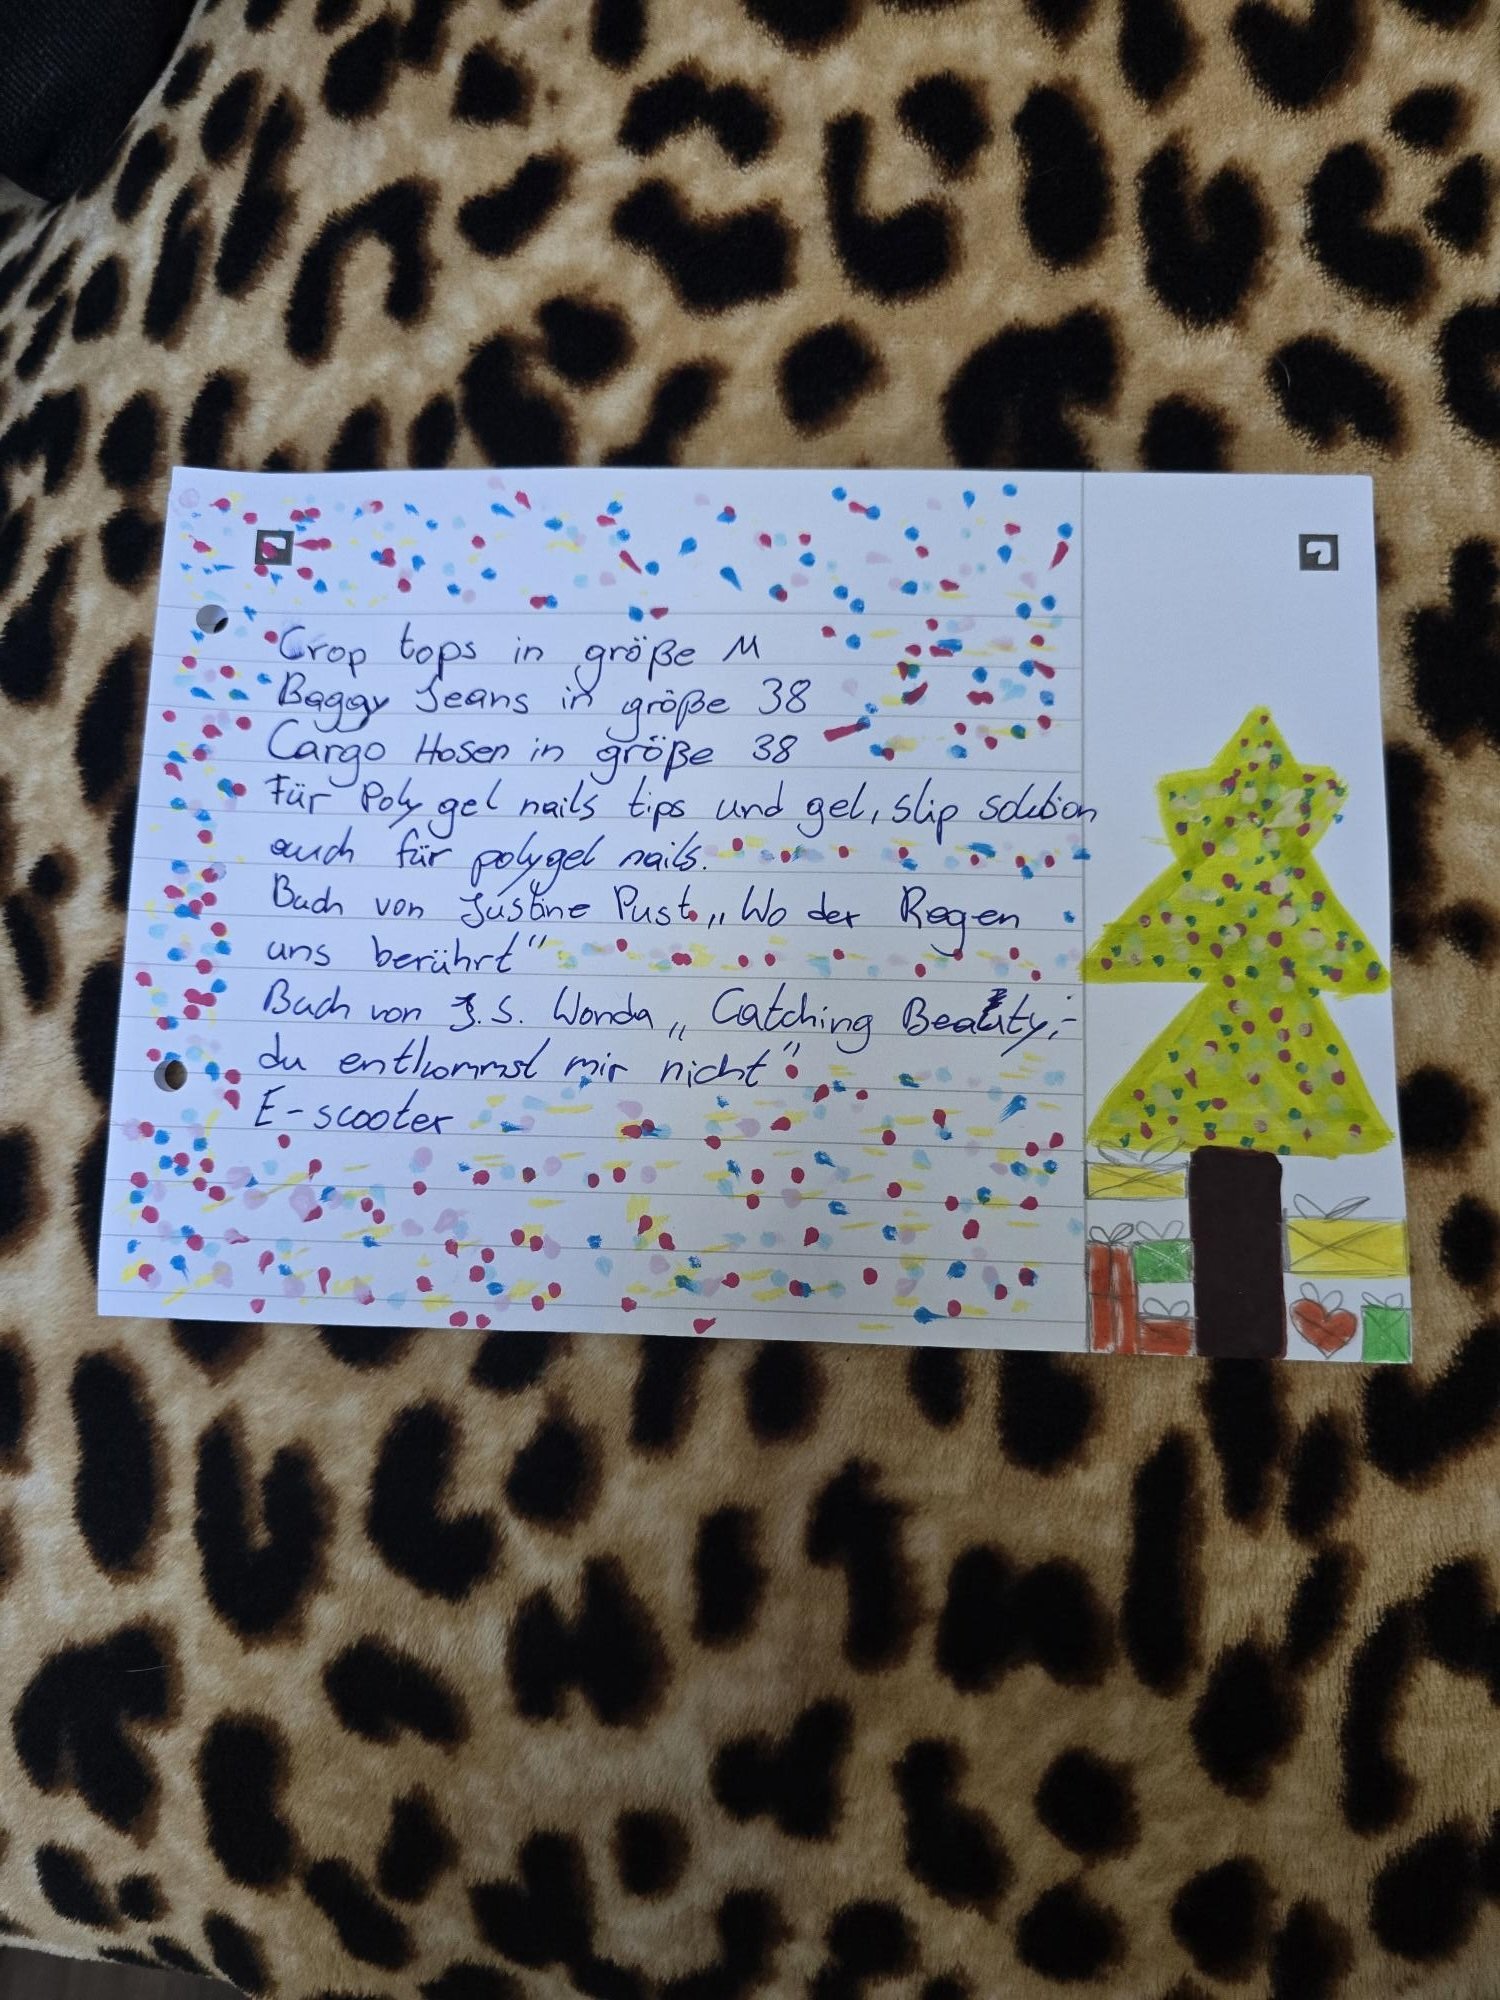 Crop tops in größe M
Baggy Jeans in größe 38
Cargo Hosen in größe 38
Für Poly gel nails tips und gel, slip solution
auch für polygel nails.
Buch von Justine Pust „Wo der Regen
uns berührt“
Buch von J. S. Wonda „Catching Beauty;-
du entkommst mir nicht“
E-scooter